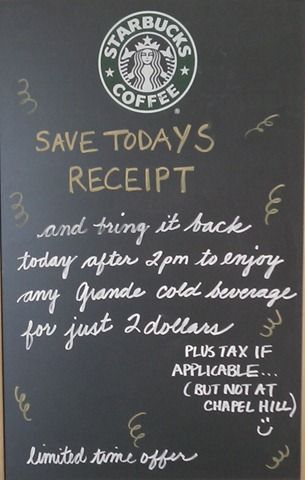 STARBUCKS
COFFEE
SAVE TODAYS
RECEIPT
and bring it back
today after 2pm to enjoy
any Grande cold beverage
for just 2 dollars
PLUS TAX IF
APPLICABLE...
(BUT NOT AT
CHAPEL HILL)
limited time offer